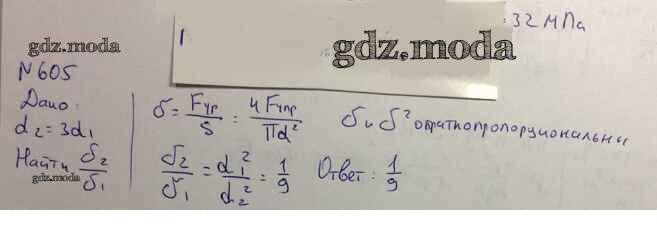 :32 МПа
gdz.moda
gdz.moda
N 605
Дано:
d₂=3d₁
Найти σ₂/σ₁
gdz.moda
σ = Fупр/S = 4Fупр/πd²
σ и δ² обратнопропорциональны
σ₂/σ₁ = d₁²/d₂² = 1/9 Ответ: 1/9